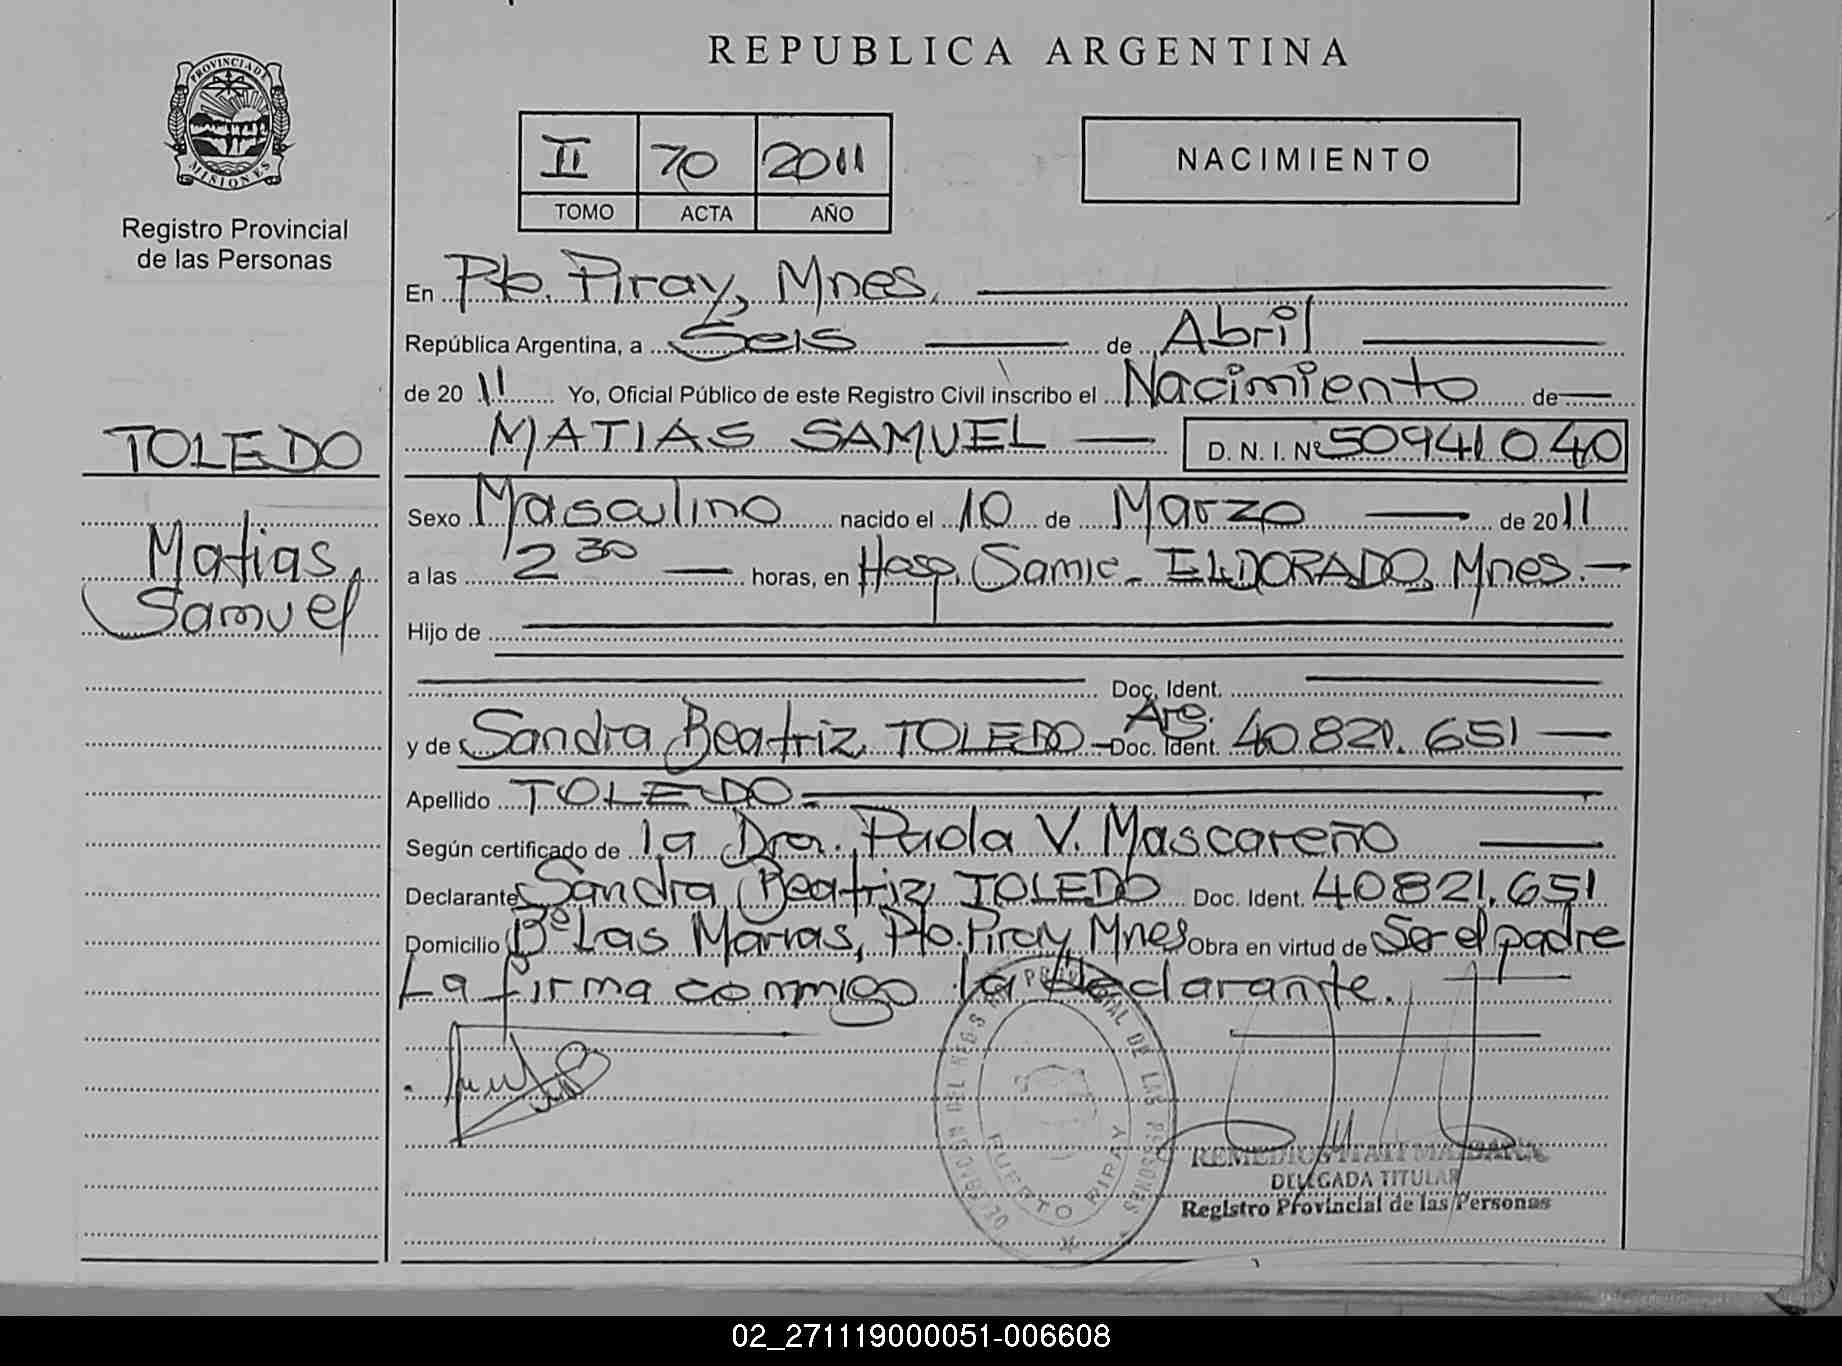 REPUBLICA ARGENTINA
PROVINCIA DE
MISIONES
Registro Provincial
de las Personas
II 70 2011
TOMO ACTA AÑO
NACIMIENTO
En Pto. Piray, Mnes.
República Argentina, a Seis de Abril
de 2011 Yo, Oficial Público de este Registro Civil inscribo el Nacimiento de
TOLEDO
MATIAS SAMUEL D. N. I. Nº 50941040
Sexo Masculino nacido el 10 de Marzo de 2011
Matias
Samuel
a las 2 30 horas, en Hosp. Samic - ELDORADO, Mnes.-
Hijo de
Doc. Ident.
y de Sandra Beatriz TOLEDO - Doc. Ident. Arg. 40.821.651
Apellido TOLEDO.
Según certificado de la Dra. Paola V. Mascareño
Declarante Sandra Beatriz TOLEDO Doc. Ident. 40821.651
Domicilio Bº Las Marias, Pto. Piray Mnes Obra en virtud de Ser el padre
La firma conmigo la declarante.
PROVINCIAL DE LAS PERSONAS
PUERTO PIRAY
DELEGADA TITULAR
Registro Provincial de las Personas
02_271119000051-006608